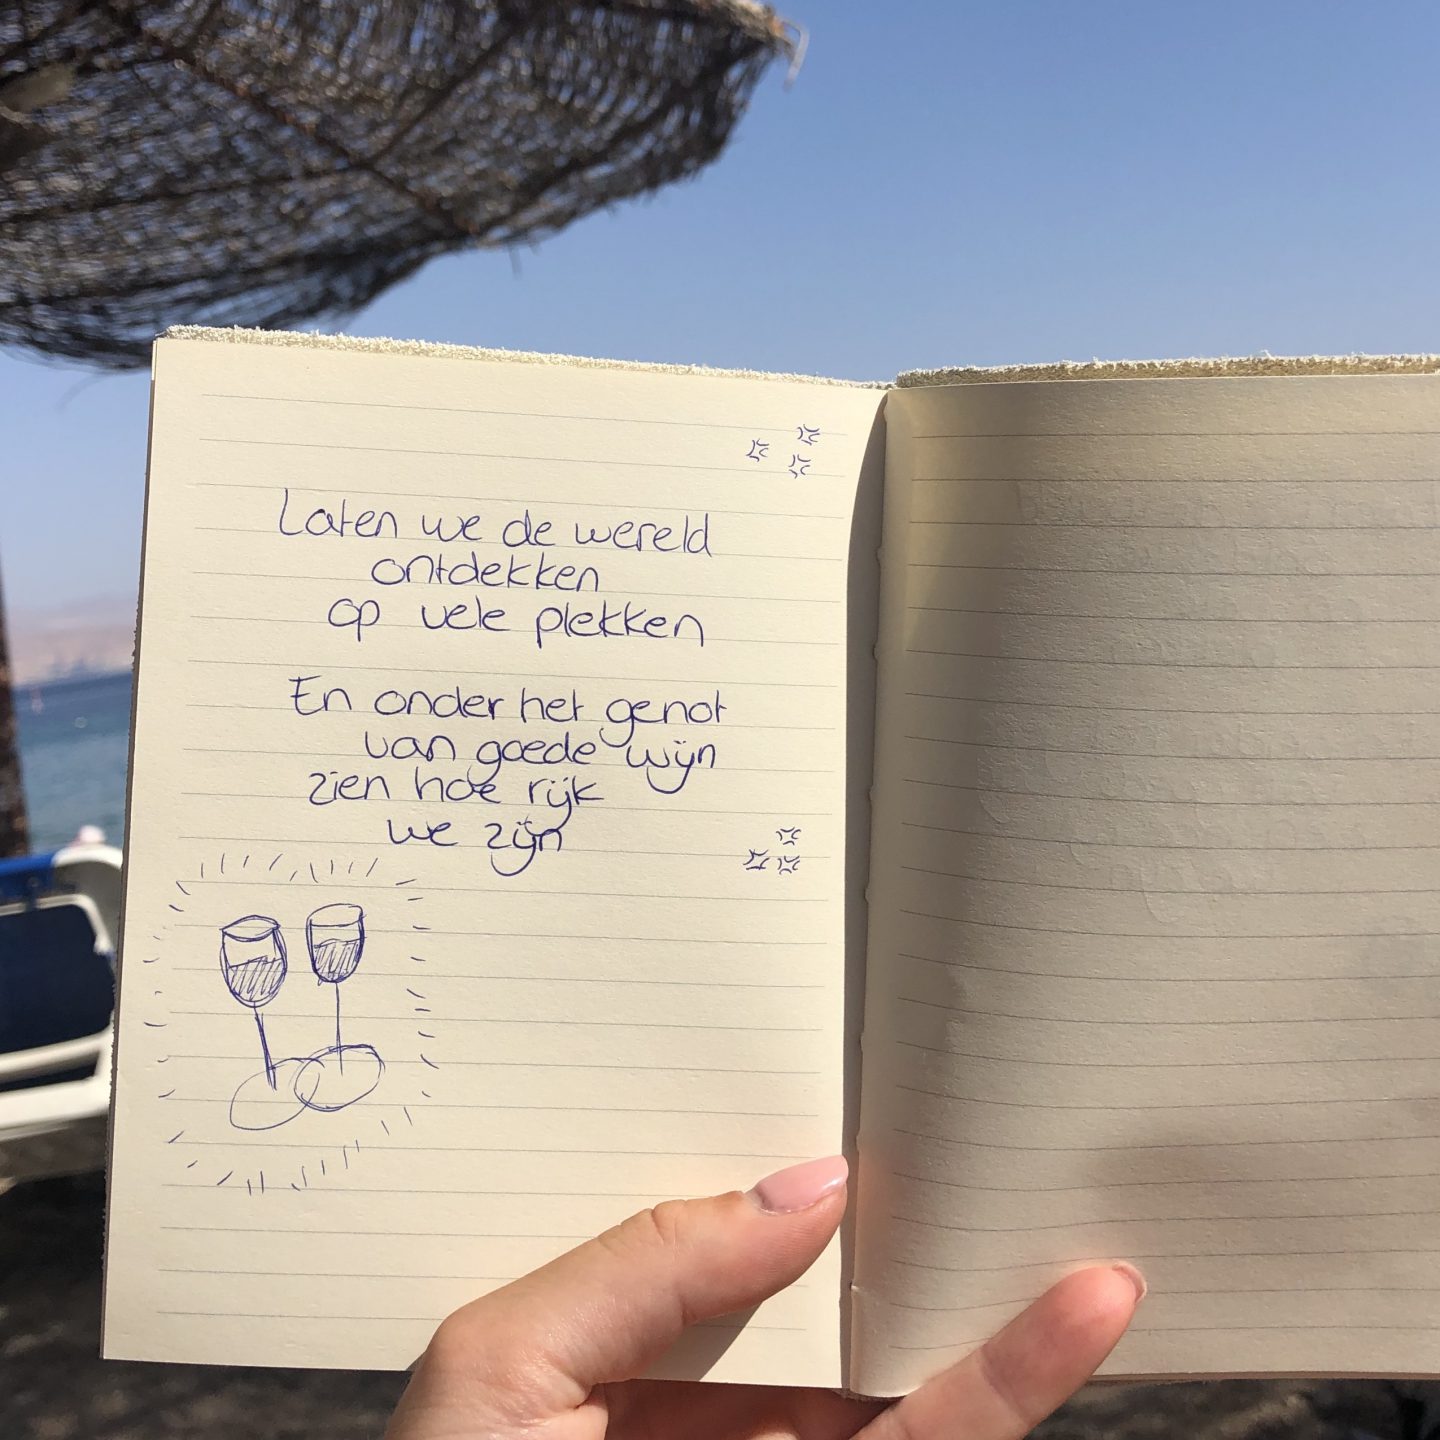 Laten we de wereld
ontdekken
op vele plekken
En onder het genot
van goede wijn
zien hoe rijk
we zijn